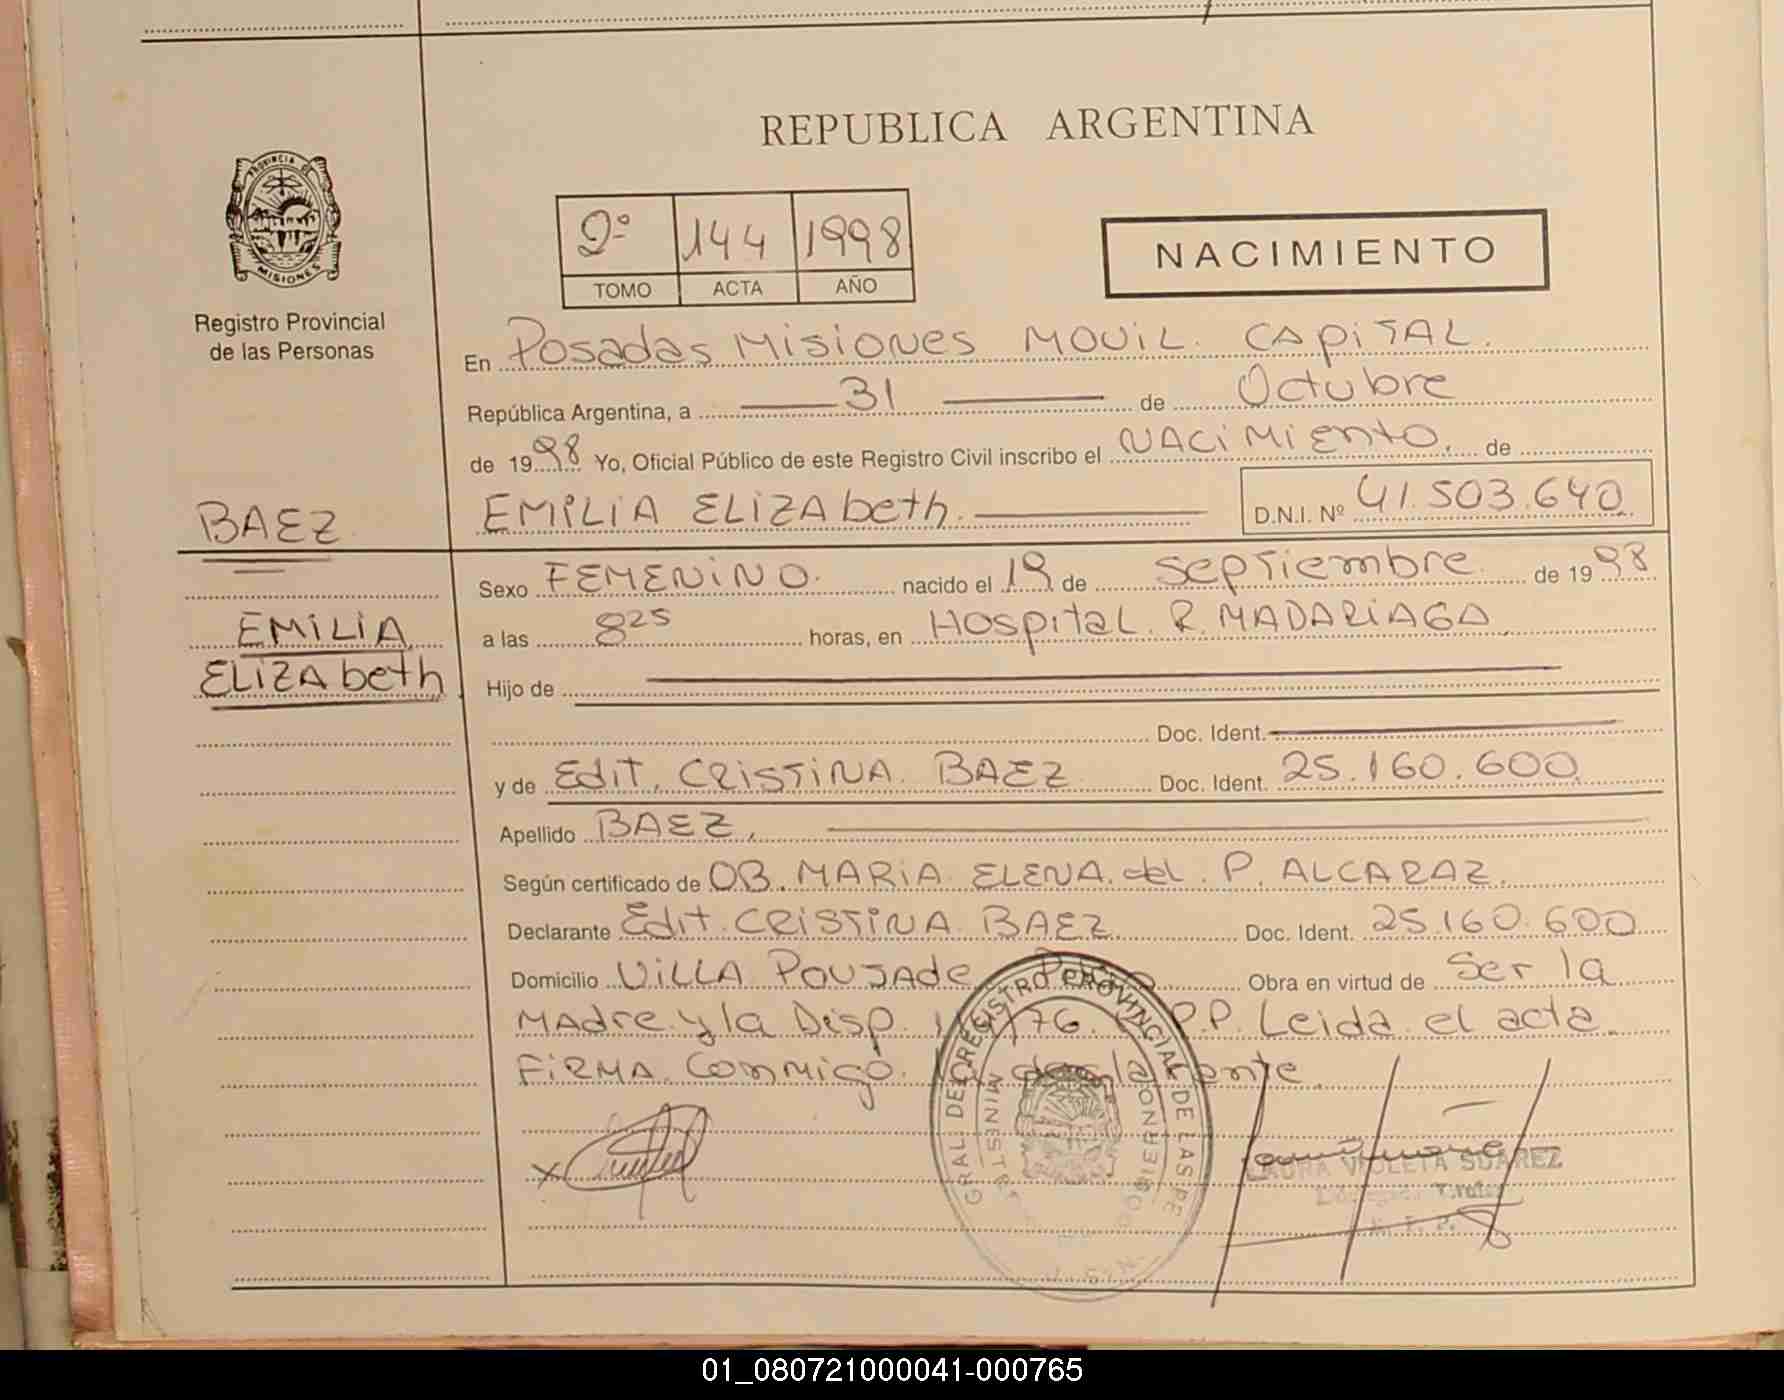 REPUBLICA ARGENTINA
PROVINCIA DE
MISIONES
Registro Provincial
de las Personas
2º 144 1998
TOMO ACTA AÑO
NACIMIENTO
En Posadas Misiones MOVIL. CAPITAL.
República Argentina, a 31 de Octubre
de 1998 Yo, Oficial Público de este Registro Civil inscribo el NACiMiento. de
BAEZ
EMILIA ELIZAbeth. D.N.I. Nº 41.503.640
Sexo FEMENiNO. nacido el 19 de Septiembre de 1998
EMILIA
ELIZAbeth.
a las 8 25 horas, en Hospital. R. MADARIAGA
Hijo de
Doc. Ident.
y de Edit. CRISTINA. BAEZ Doc. Ident. 25.160.600
Apellido BAEZ.
Según certificado de OB. MARIA ELENA. del. P. ALCARAZ.
Declarante Edit. CRISTINA BAEZ Doc. Ident. 25.160.600
Domicilio VILLA POUJADE Obra en virtud de Ser la
MAdre y la Disp. /76. P.P. Leida el acta
FiRMA Conmigo. la declarante.
GRAL. DEL REGISTRO PROVINCIAL DE LAS PE
MINIST GOBIERNO
LAURA VIOLETA SUAREZ
01_080721000041-000765